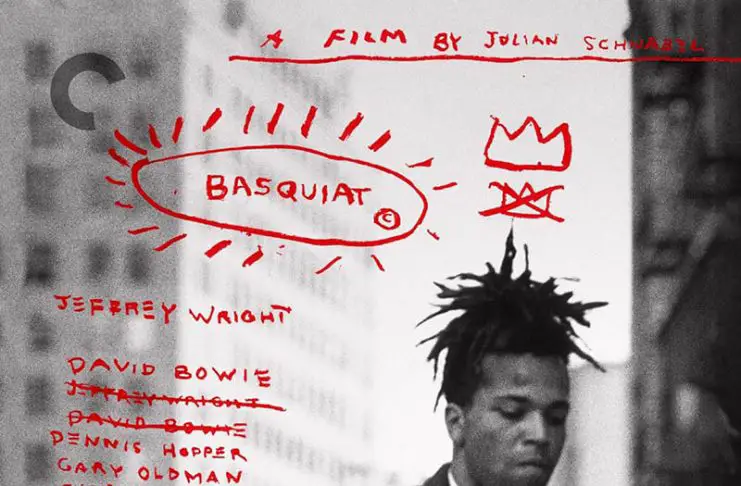 A FILM BY JULIAN SCHNABEL
BASQUIAT ©
JEFFREY WRIGHT
DAVID BOWIE
JEFFREY WRIGHT
DAVID BOWIE
DENNIS HOPPER
GARY OLDMAN